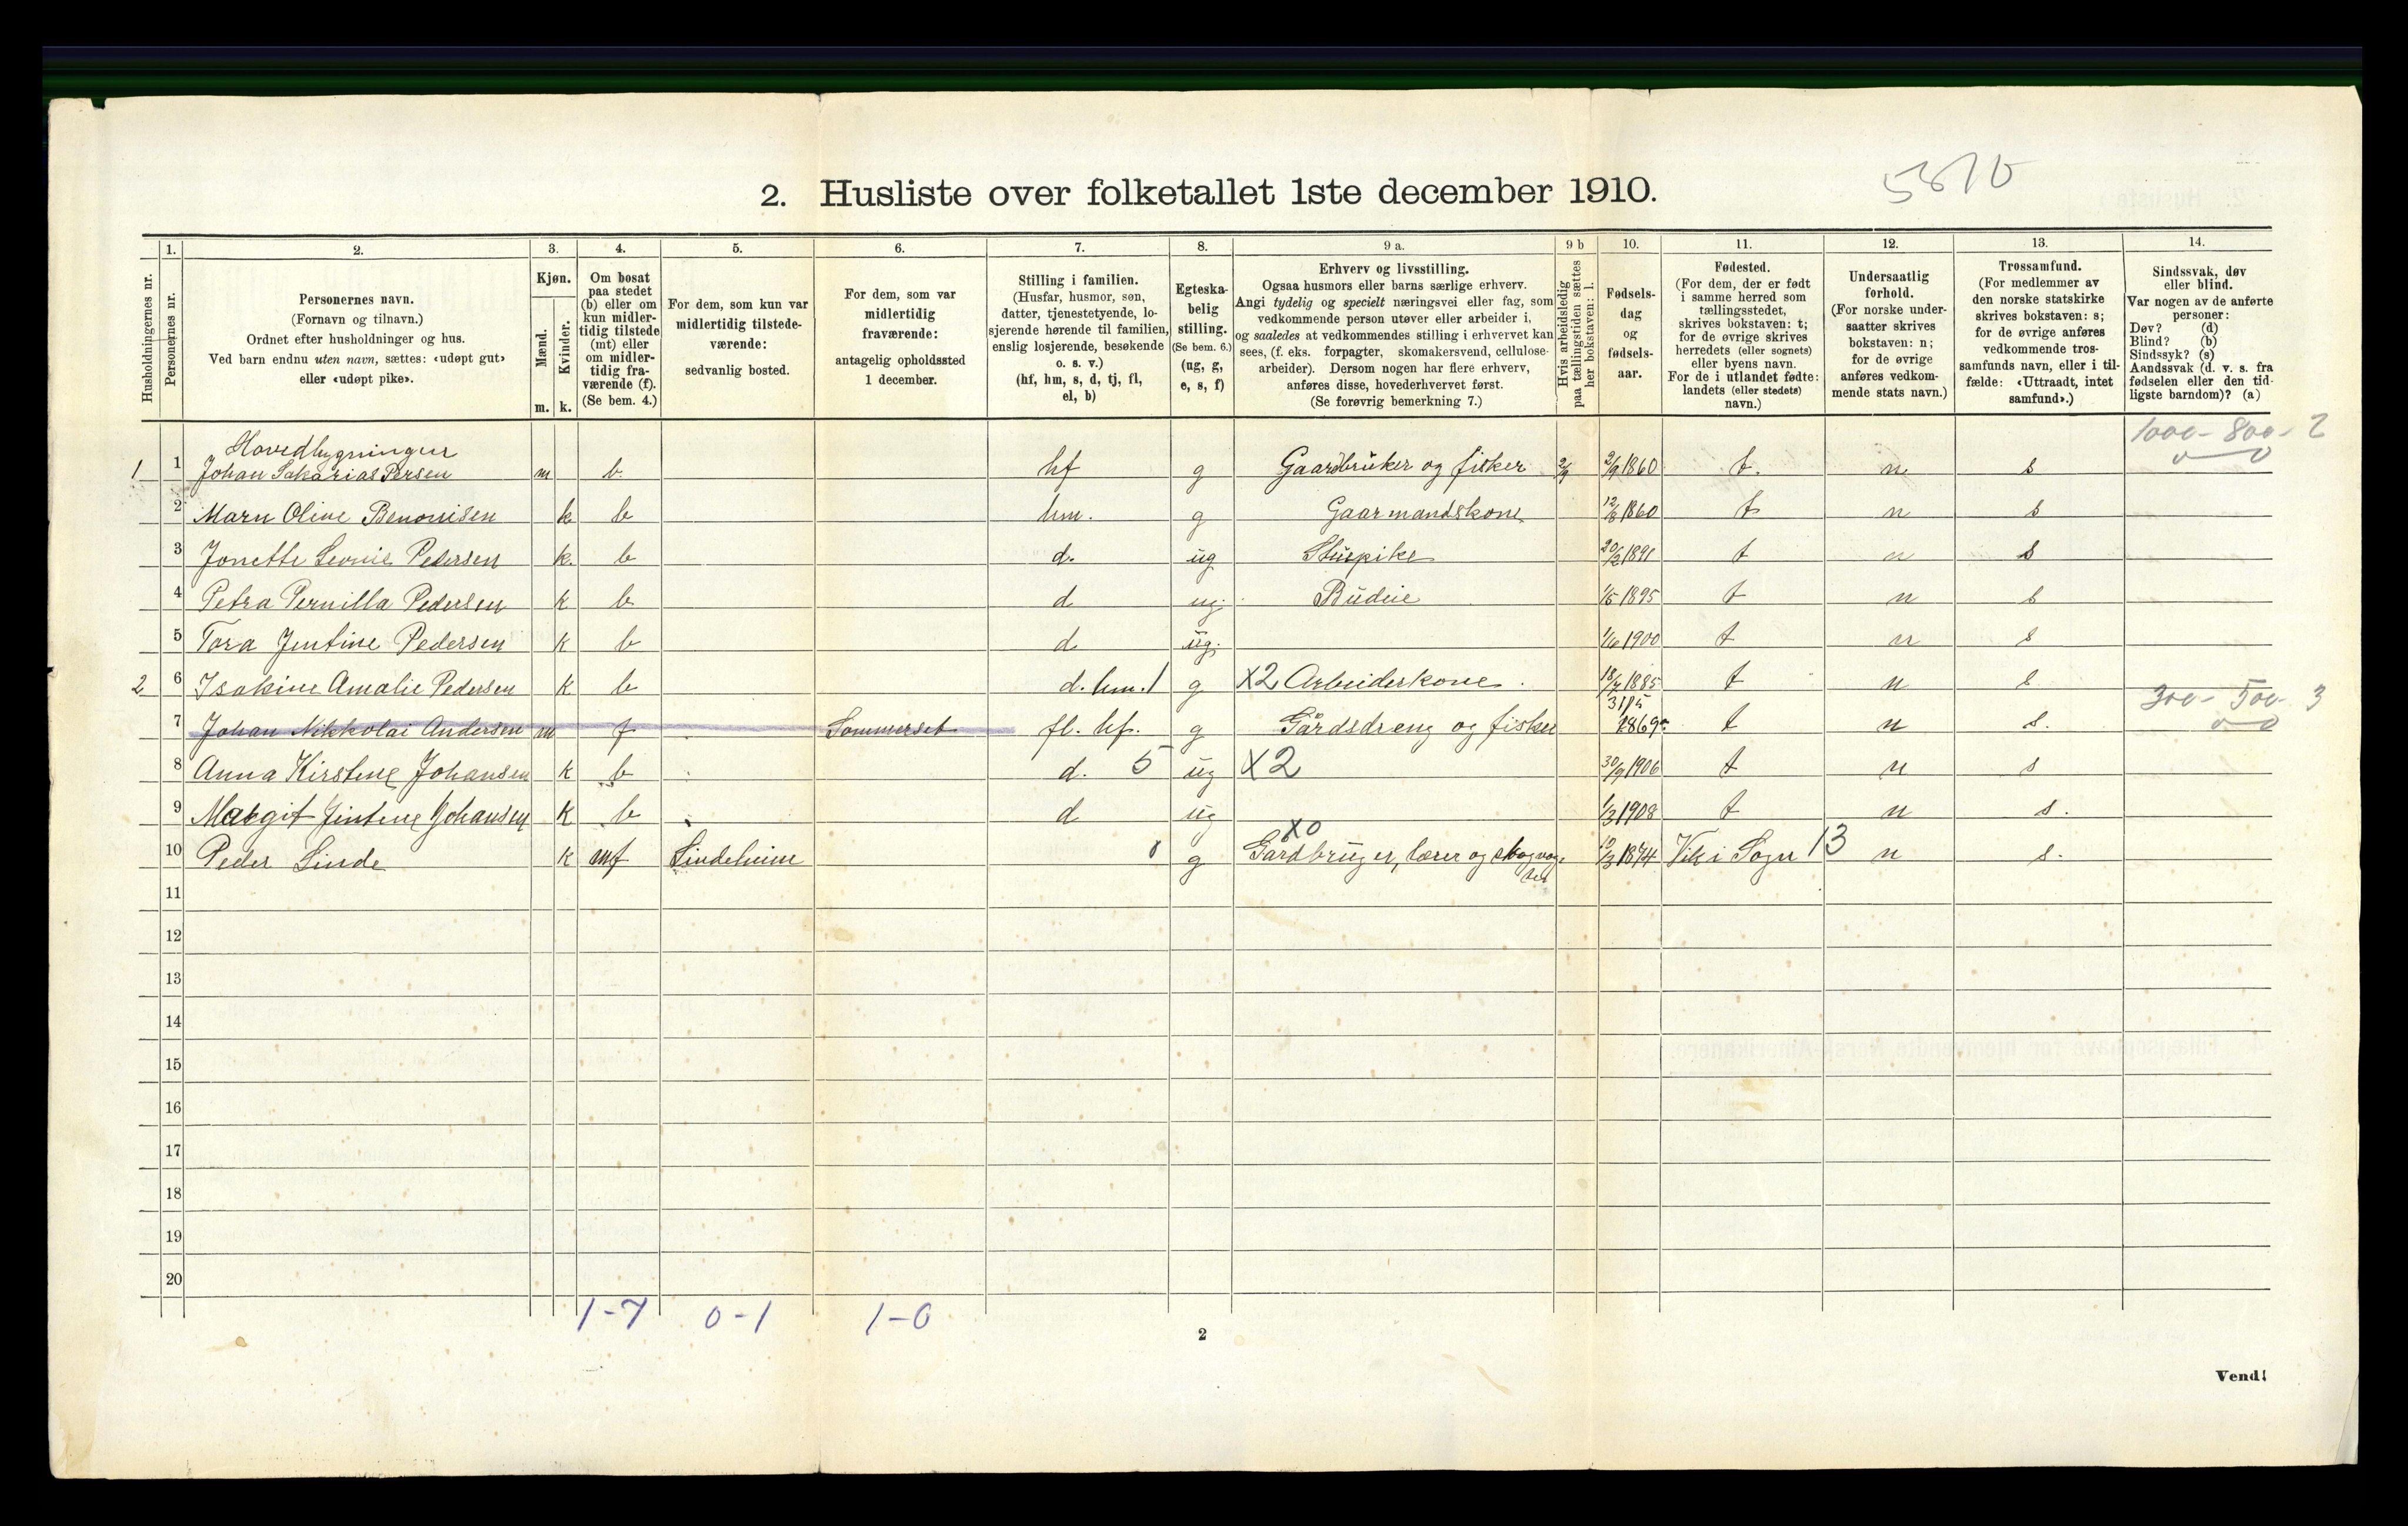 5810
2. Husliste over folketallet 1ste december 1910.
Husholdningernes nr.
1.
Personernes nr.
2.
Personernes navn.
(Fornavn og tilnavn.)
Ordnet efter husholdninger og hus.
Ved barn endnu uten navn, sættes: «udøpt gut»
eller «udøpt pike».
3.
Kjøn.
Mænd.
Kvinder.
m. k.
4.
Om bosat
paa stedet
(b) eller om
kun midler-
tidig tilstede
(mt) eller
om midler-
tidig fra-
værende (f).
(Se bem. 4.)
5.
For dem, som kun var
midlertidig tilstede-
værende:
sedvanlig bosted.
6.
For dem, som var
midlertidig
fraværende:
antagelig opholdssted
1 december.
7.
Stilling i familien.
(Husfar, husmor, søn,
datter, tjenestetyende, lo-
sjerende hørende til familien,
enslig losjerende, besøkende
o. s. v.)
(hf, hm, s, d, tj, fl,
el, b)
8.
Egteska-
belig
stilling.
(Se bem. 6.)
(ug, g,
e, s, f)
9 a.
Erhverv og livsstilling.
Ogsaa husmors eller barns særlige erhverv.
Angi tydelig og specielt næringsvei eller fag, som
vedkommende person utøver eller arbeider i,
og saaledes at vedkommendes stilling i erhvervet kan
sees, (f. eks. forpagter, skomakersvend, cellulose-
arbeider). Dersom nogen har flere erhverv,
anføres disse, hovederhvervet først.
(Se forøvrig bemerkning 7.)
9 b
Hvis arbeidsledig
paa tællingstiden sættes
her bokstaven: l.
10.
Fødsels-
dag
og
fødsels-
aar.
11.
Fødested.
(For dem, der er født
i samme herred som
tællingsstedet,
skrives bokstaven: t;
for de øvrige skrives
herredets (eller sognets)
eller byens navn.
For de i utlandet fødte:
landets (eller stedets)
navn.)
12.
Undersaatlig
forhold.
(For norske under-
saatter skrives
bokstaven: n;
for de øvrige
anføres vedkom-
mende stats navn.)
13.
Trossamfund.
(For medlemmer av
den norske statskirke
skrives bokstaven: s;
for de øvrige anføres
vedkommende tros-
samfunds navn, eller i til-
fælde: «Uttraadt, intet
samfund».)
14.
Sindssvak, døv
eller blind.
Var nogen av de anførte
personer:
Døv? (d)
Blind? (b)
Sindssyk? (s)
Aandssvak (d. v. s. fra
fødselen eller den tid-
ligste barndom)? (a)
1000 - 800 - 2
Hovedbygningen
1 1 Johan Sakarias Persen m b. hf g Gaardbruker og fisker 2/9 2/9 1860 t. n s
2 Marn Oline Benonisen k b hm. g Gaarmandskone 12/8 1860 t n s
3 Jonette Leonie Pedersen k. b d. ug Stuepike 20/2 1891 t n s
4 Petra Pernilla Pedersen k b d ug. Budeie 1/5 1895 t n s
5 Tora Jentine Pedersen k b d ug. 1900 t n s
2 6 Isakine Amalie Pedersen k b d. hm. 1 g X2 Arbeiderkone. 1885 t n s
300 - 500 - 3
7 Johan Nikkolai Andersen m f Sommerset fl. hf. g Gårdsdreng og fisker 31/5 1869 t n s.
8 Anna Kirstine Johansen k b d. 5 ug X2 30/9 1906 t n s
9 Margit Jentine Johansen k b d ug 1/3 1908 t n s.
10 Peder Linde k mf Lindeheim g X0 Gårdbruger, lærer og skogvog- 10/3 1874 Vik i Sogn 13 n s.
ter
11
12
13
14
15
16
17
18
19
20
1-7 0-1 1-0
2
Vend!